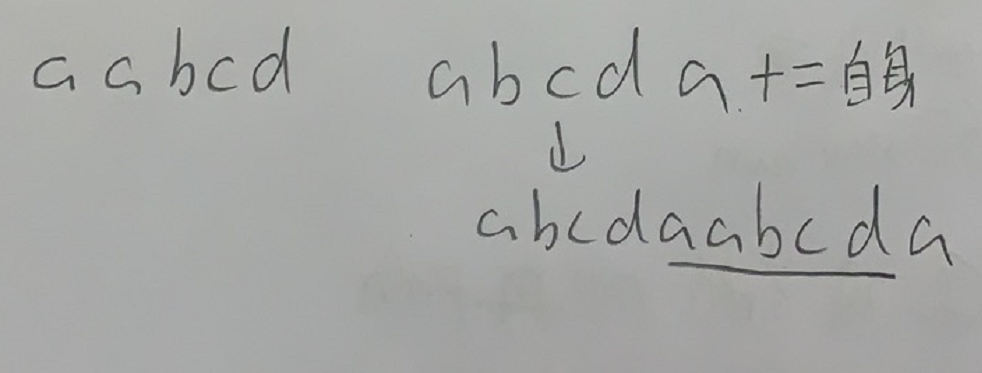 aabcd abcda+=自身
↓
abcdaabcda